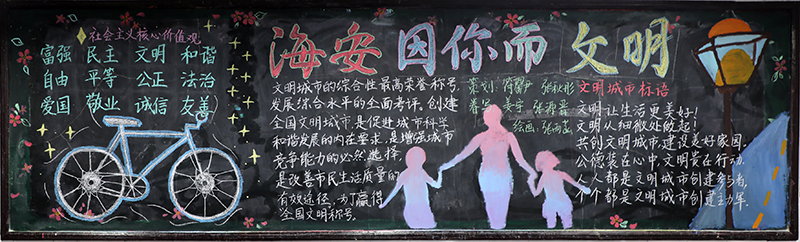 社会主义核心价值观
富强 民主 文明 和谐
自由 平等 公正 法治
爱国 敬业 诚信 友善
海安因你而文明
文明城市的综合性最高荣誉称号,
发展综合水平的全面考评,创建
全国文明城市,是促进城市科学
和谐发展的内在要求,是增强城市
竞争能力的必然选择,
是改善市民生活质量的
有效途径,为了赢得
全国文明称号。
策划:
书写:
绘画:
文明城市标语
文明让生活更美好!
文明从细微处做起!
共创文明城市,建设美好家园.
公德装在心中,文明贵在行动.
人人都是文明城市创建参与者,
个个都是文明城市创建主力军.